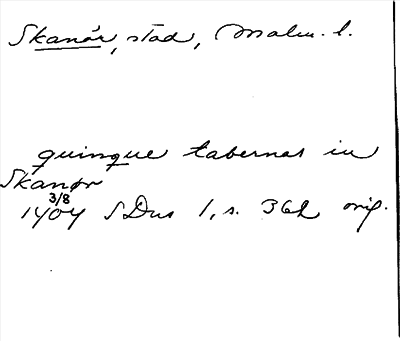 Skanör, stad, Malm. l.
quinque tabernas in
Skanør
3/8
1404 SDns 1, s. 362 orig.